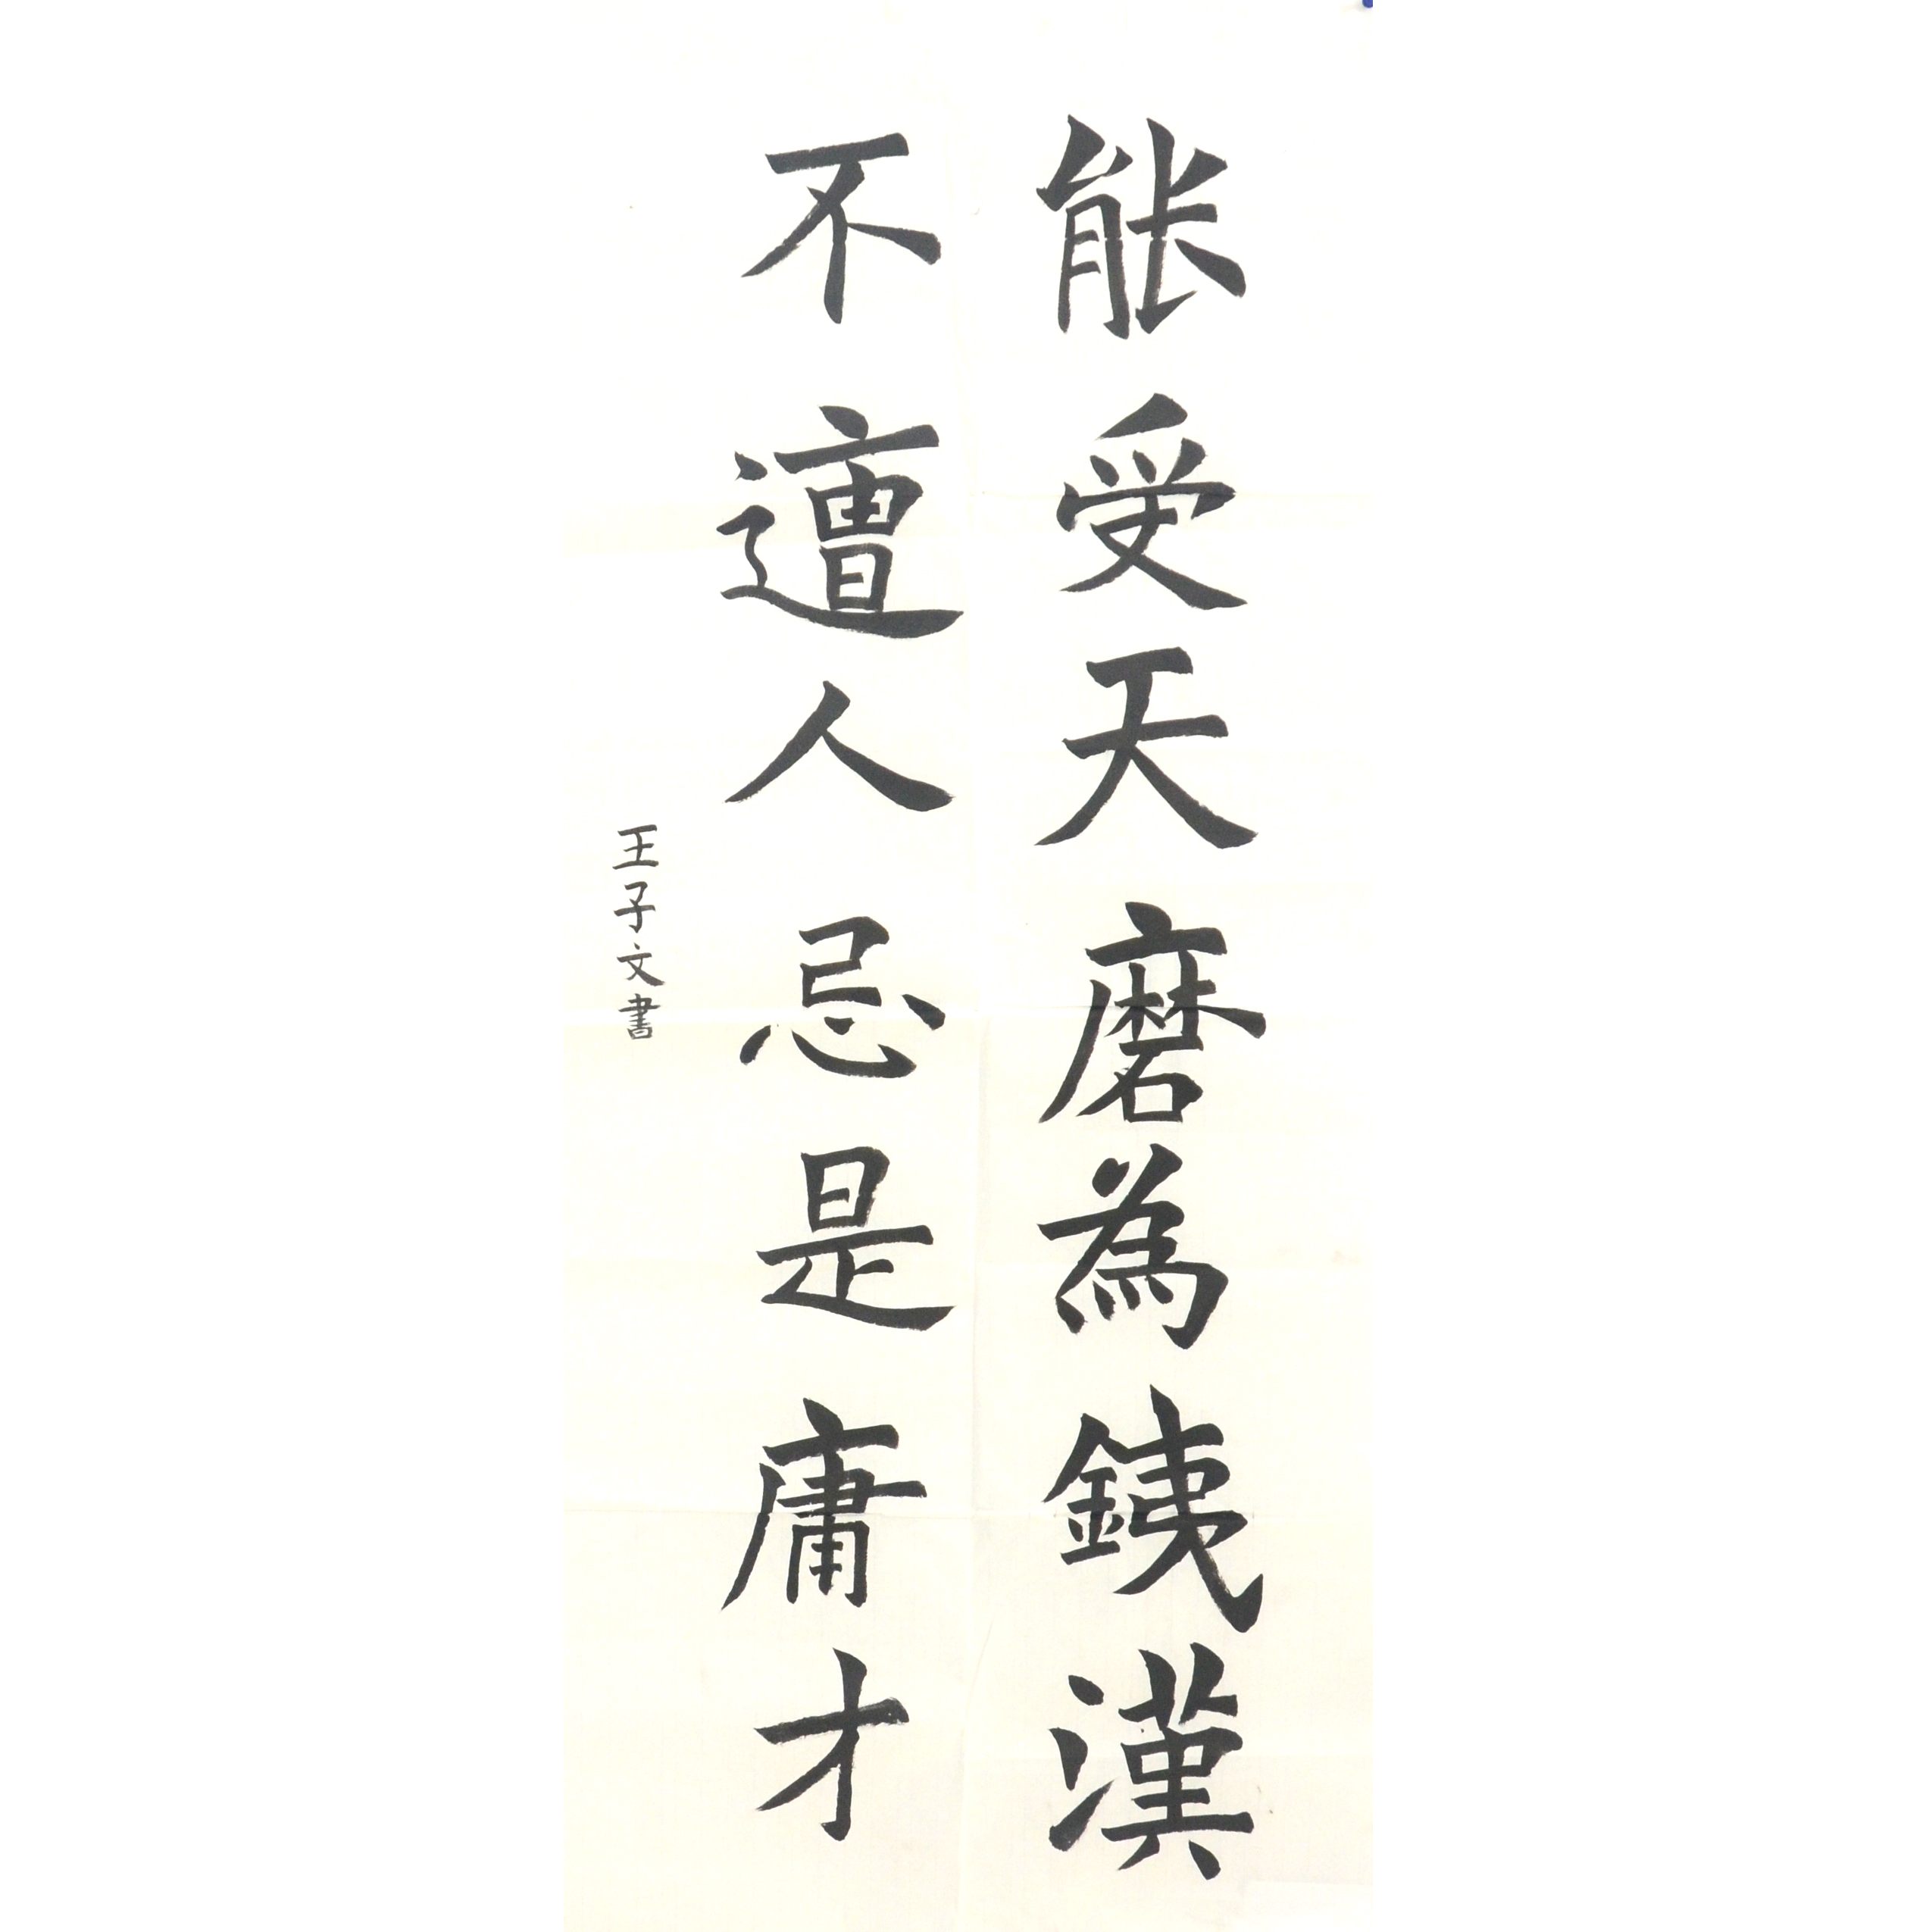 能受天磨為銕漢
不遭人忌是庸才
王子文書